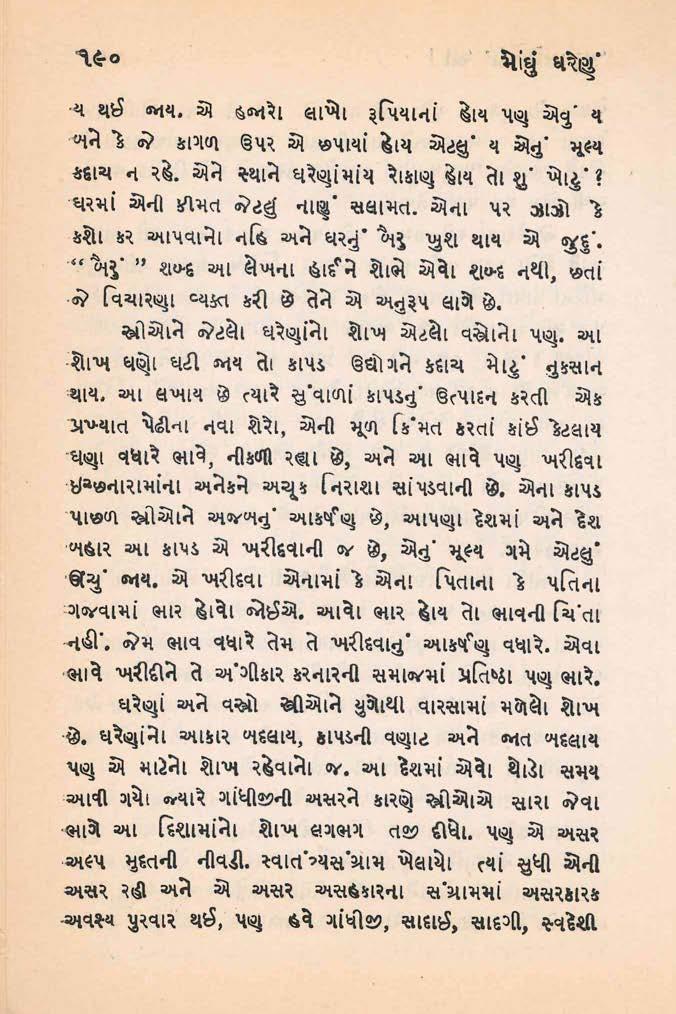 ૧૯૦ મોંઘું ઘરેણું
ય થઈ જાય. એ હજારો લાખો રૂપિયાનાં હોય પણ એવું ય
બને કે જે કાગળ ઉપર એ છપાયાં હોય એટલું ય એનું મૂલ્ય
કદાચ ન રહે. એને સ્થાને ઘરેણાંમાંય રોકાણ હોય તો શું ખોટું ?
ઘરમાં એની કીમત જેટલું નાણું સલામત. એના પર ઝાઝો કે
કશો કર આપવાનો નહિ અને ઘરનું બૈરું ખુશ થાય એ જુદું.
“ બૈરું ” શબ્દ આ લેખના હાર્દને શોભે એવો શબ્દ નથી, છતાં
જે વિચારણા વ્યક્ત કરી છે તેને એ અનુરૂપ લાગે છે.
સ્ત્રીઓને જેટલો ઘરેણાંનો શોખ એટલો વસ્ત્રોનો પણ. આ
શોખ ઘણો ઘટી જાય તો કાપડ ઉદ્યોગને કદાચ મોટું નુકસાન
થાય. આ લખાય છે ત્યારે સુંવાળાં કાપડનું ઉત્પાદન કરતી એક
પ્રખ્યાત પેઢીના નવા શેરો, એની મૂળ કિંમત કરતાં કાંઈ કેટલાય
ઘણા વધારે ભાવે, નીકળી રહ્યા છે, અને આ ભાવે પણ ખરીદવા
ઇચ્છનારામાંના અનેકને અચૂક નિરાશા સાંપડવાની છે. એના કાપડ
પાછળ સ્ત્રીઓને અજબનું આકર્ષણ છે, આપણા દેશમાં અને દેશ
બહાર આ કાપડ એ ખરીદવાની જ છે, એનું મૂલ્ય ગમે એટલું
ઊંચું જાય. એ ખરીદવા એનામાં કે એના પિતાના કે પતિના
ગજવામાં ભાર હોવો જોઈએ. આવો ભાર હોય તો ભાવની ચિંતા
નહીં. જેમ ભાવ વધારે તેમ તે ખરીદવાનું આકર્ષણ વધારે. એવા
ભાવે ખરીદીને તે અંગીકાર કરનારની સમાજમાં પ્રતિષ્ઠા પણ ભારે.
ઘરેણાં અને વસ્ત્રો સ્ત્રીઓને યુગોથી વારસામાં મળેલો શોખ
છે. ઘરેણાંનો આકાર બદલાય, કાપડની વણાટ અને જાત બદલાય
પણ એ માટેનો શોખ રહેવાનો જ. આ દેશમાં એવો થોડો સમય
આવી ગયો જ્યારે ગાંધીજીની અસરને કારણે સ્ત્રીઓએ સારા જેવા
ભાગે આ દિશામાંનો શોખ લગભગ તજી દીધો. પણ એ અસર
અલ્પ મુદ્દતની નીવડી. સ્વાતંત્ર્યસંગ્રામ ખેલાયો ત્યાં સુધી એની
અસર રહી અને એ અસર અસહકારના સંગ્રામમાં અસરકારક
અવશ્ય પુરવાર થઈ, પણ હવે ગાંધીજી, સાદાઈ, સાદગી, સ્વદેશી